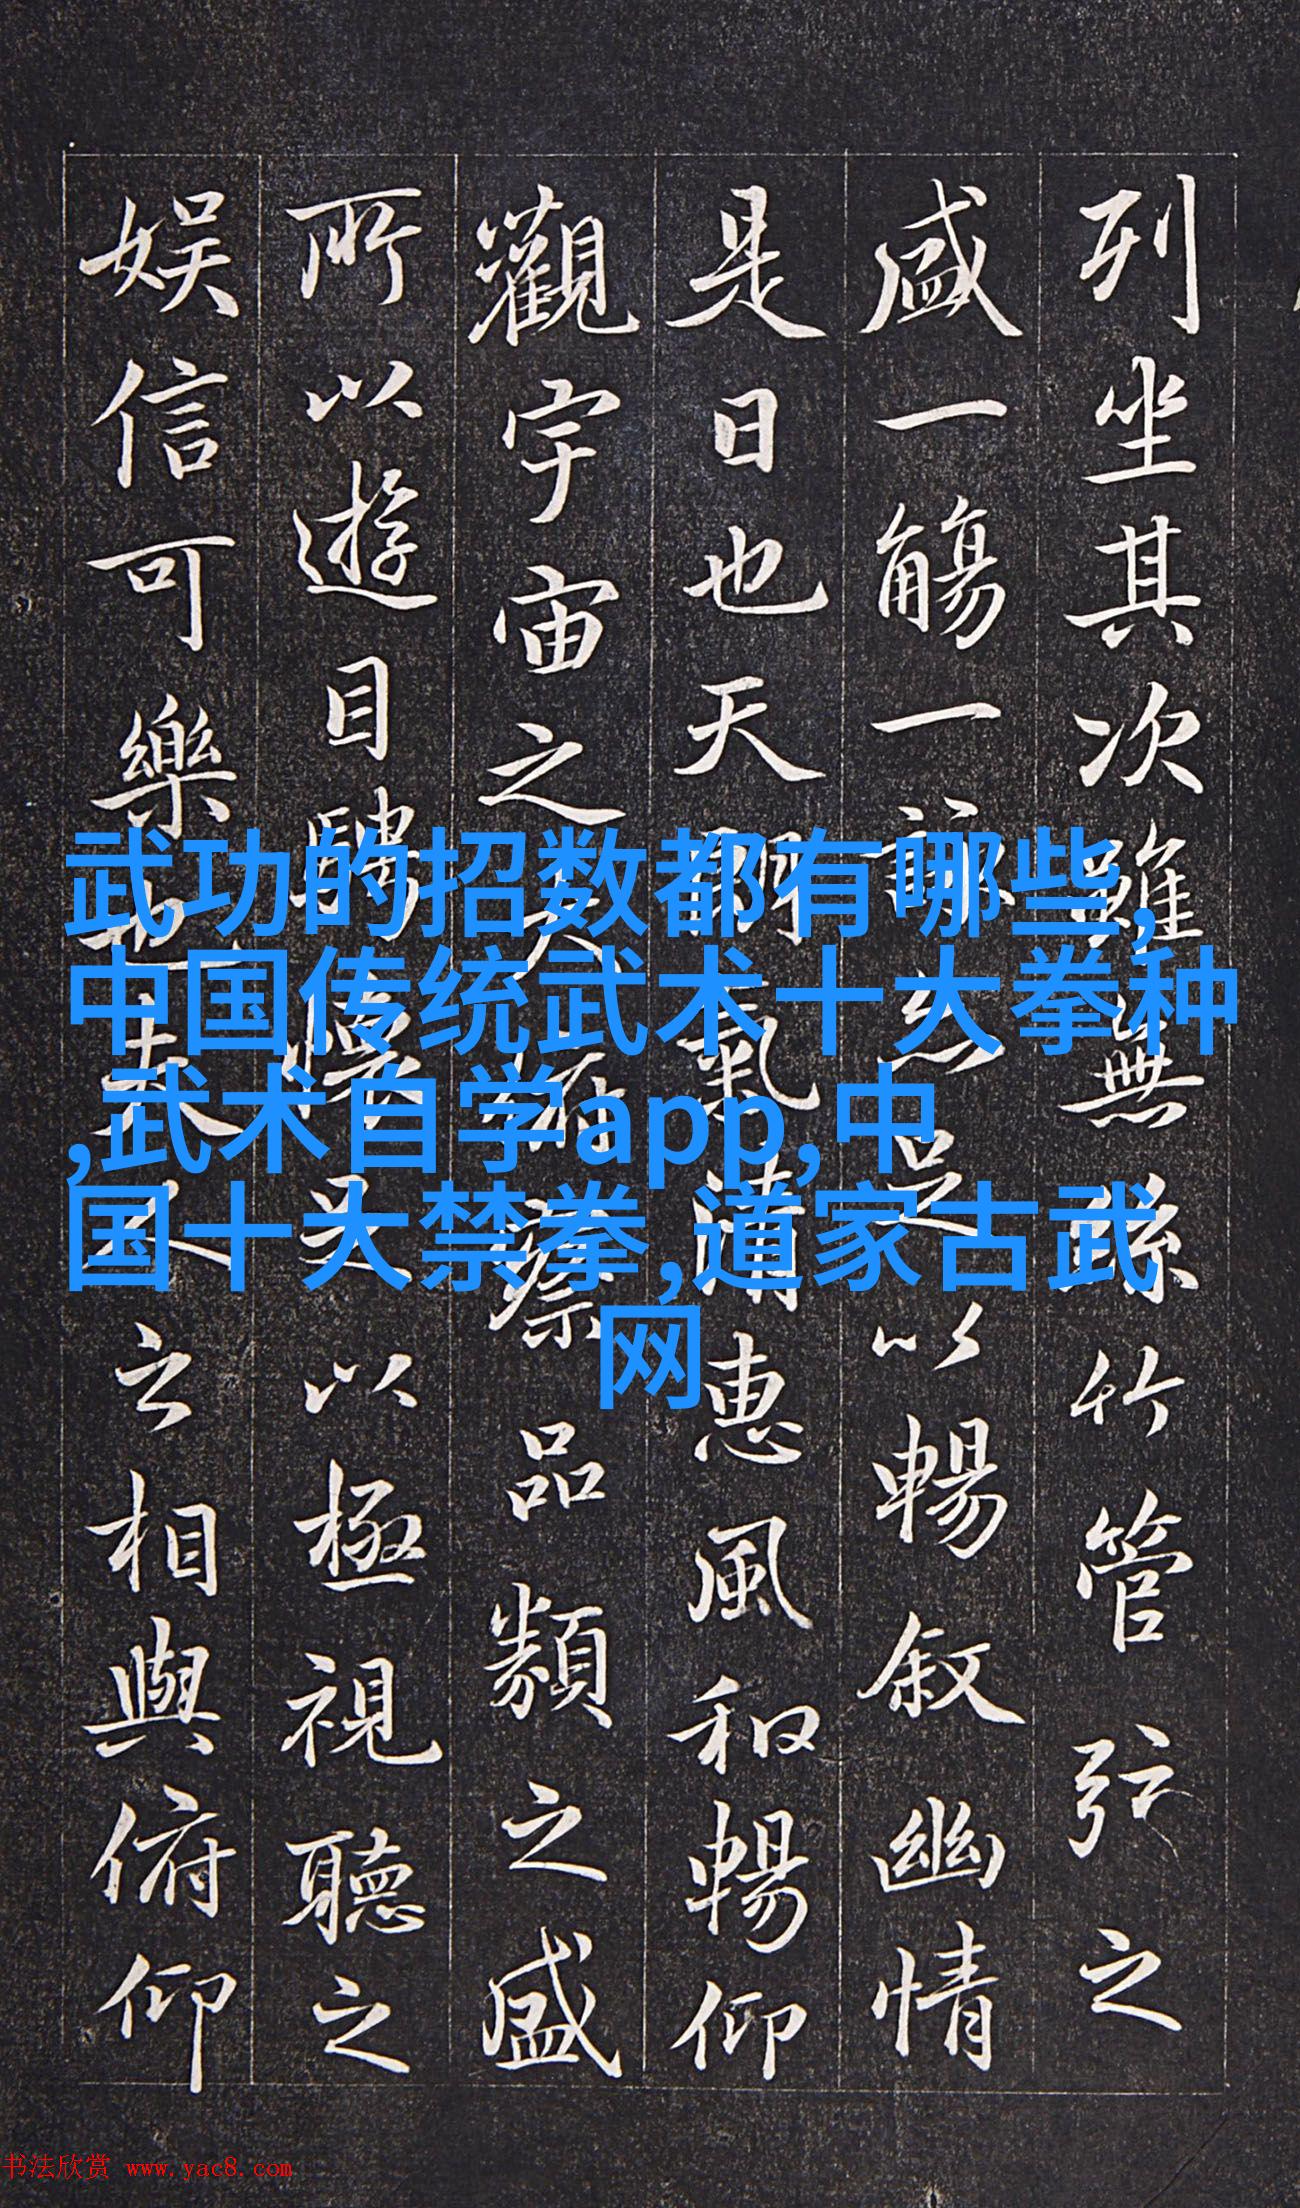 列坐其次雖無絲竹管弦之
盛一觴一詠亦足以暢敘幽情
是日也天朗氣清惠風和暢仰
觀宇宙之大俯察品類之盛
所以遊目騁懷足以極視聽之
娛信可樂也夫人之相與俯仰
武功的招数都有哪些,
中国传统武术十大拳种
,武术自学app,中
国十大禁拳,道家古武
网
书法欣赏 www.yac8.com